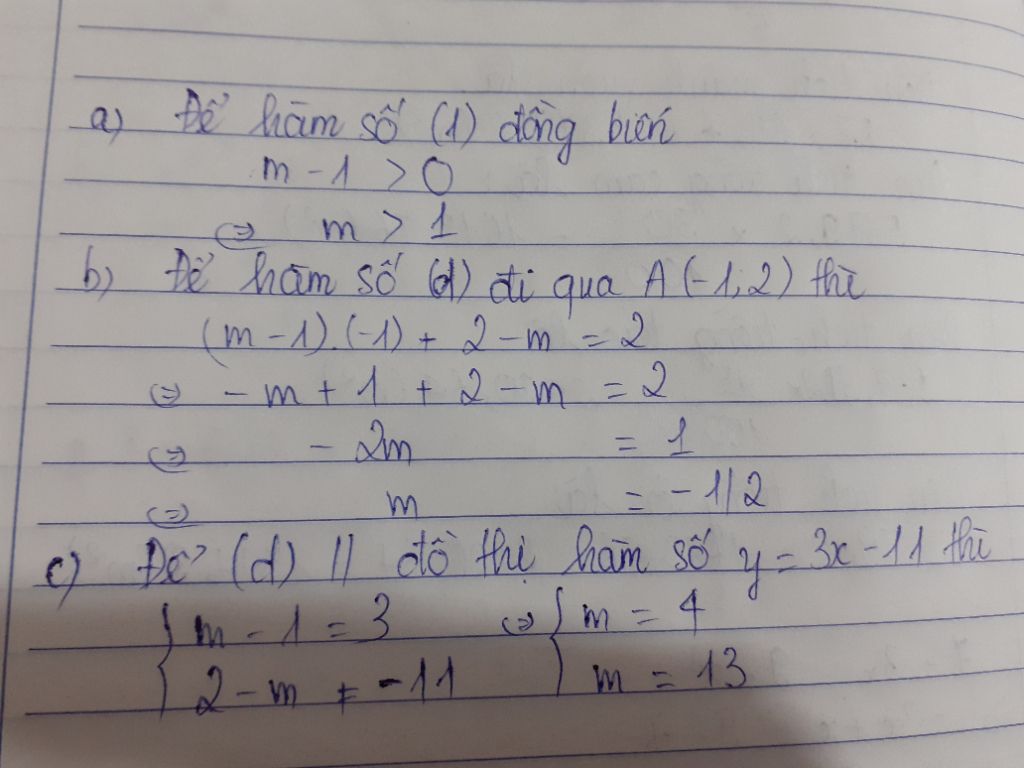 a) Để hàm số (1) đồng biến
m - 1 > 0
⇔ m > 1
b) Để hàm số (d) đi qua A (-1; 2) thì
(m - 1).(-1) + 2 - m = 2
⇔ - m + 1 + 2 - m = 2
⇔ - 2m = 1
⇔ m = - 1/2
c) Để (d) // đồ thị hàm số y = 3x - 11 thì
{ m - 1 = 3 ⇔ { m = 4
{ 2 - m ≠ -11 { m = 13